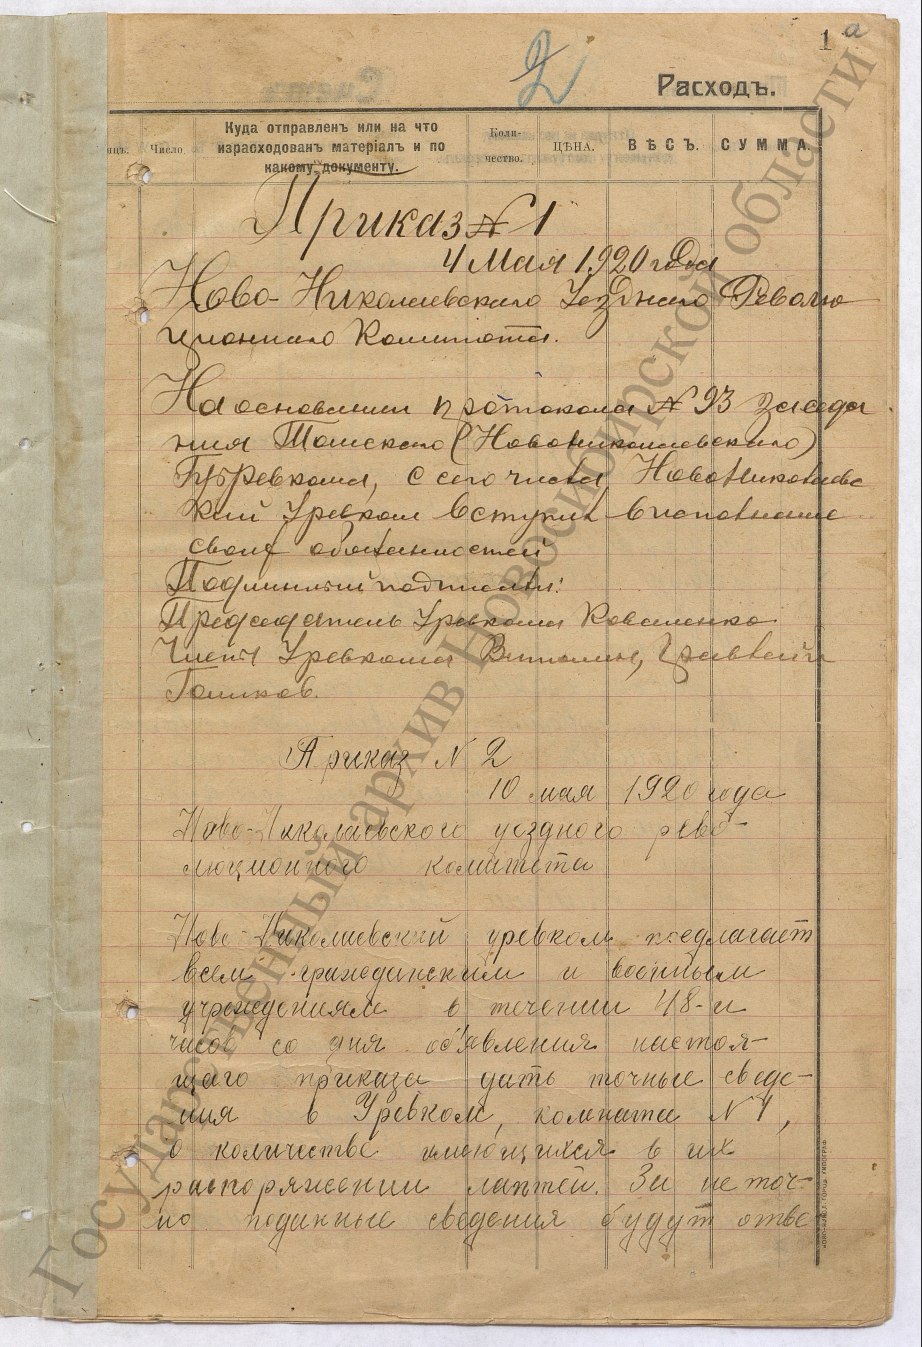 1 а
2
Расходъ.
Число
Куда отправленъ или на что израсходованъ матеріалъ и по какому документу.
Коли-
чество.
ЦѢНА.
ВѢСЪ.
СУММА.
Приказ № 1
4 Мая 1920 года
Ново-Николаевского Уездного Револю
ционного Комитета.
На основании протокола № 93 заседа
ния Томского (Новониколаевского)
Губревкома, с сего числа Новониколаевс
кий Уревком вступил в исполнение
своих обязанностей
Подлинный подписали:
Председатель Уревкома Коваленко
Члены Уревкома
Приказ N 2
10 мая 1920 года
Ново-Николаевского уездного рево-
люционного комитета
Ново-Николаевский уревком предлагает
всем гражданским и военным
учреждениям в течении 48-и
часов со дня об'явления настоя-
щаго приказа дать точные сведе-
ния в Уревком, комната N 4,
о количестве имеющихся в их
распоряжении лаптей. За не точ-
но поданные сведения будут отве
Государственный архив Новосибирской области